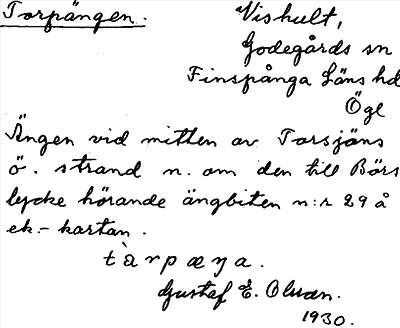 Torpängen.
Vishult,
Godegårds sn
Finspånga Läns hd
Ögl
Ängen vid mitten av Torsjöns
ö. strand n. om den till Börs
lycke hörande ängbiten n:r 29 å
ek.-kartan.
tàrpæŋa.
Gustaf E. Olsson.
1930.